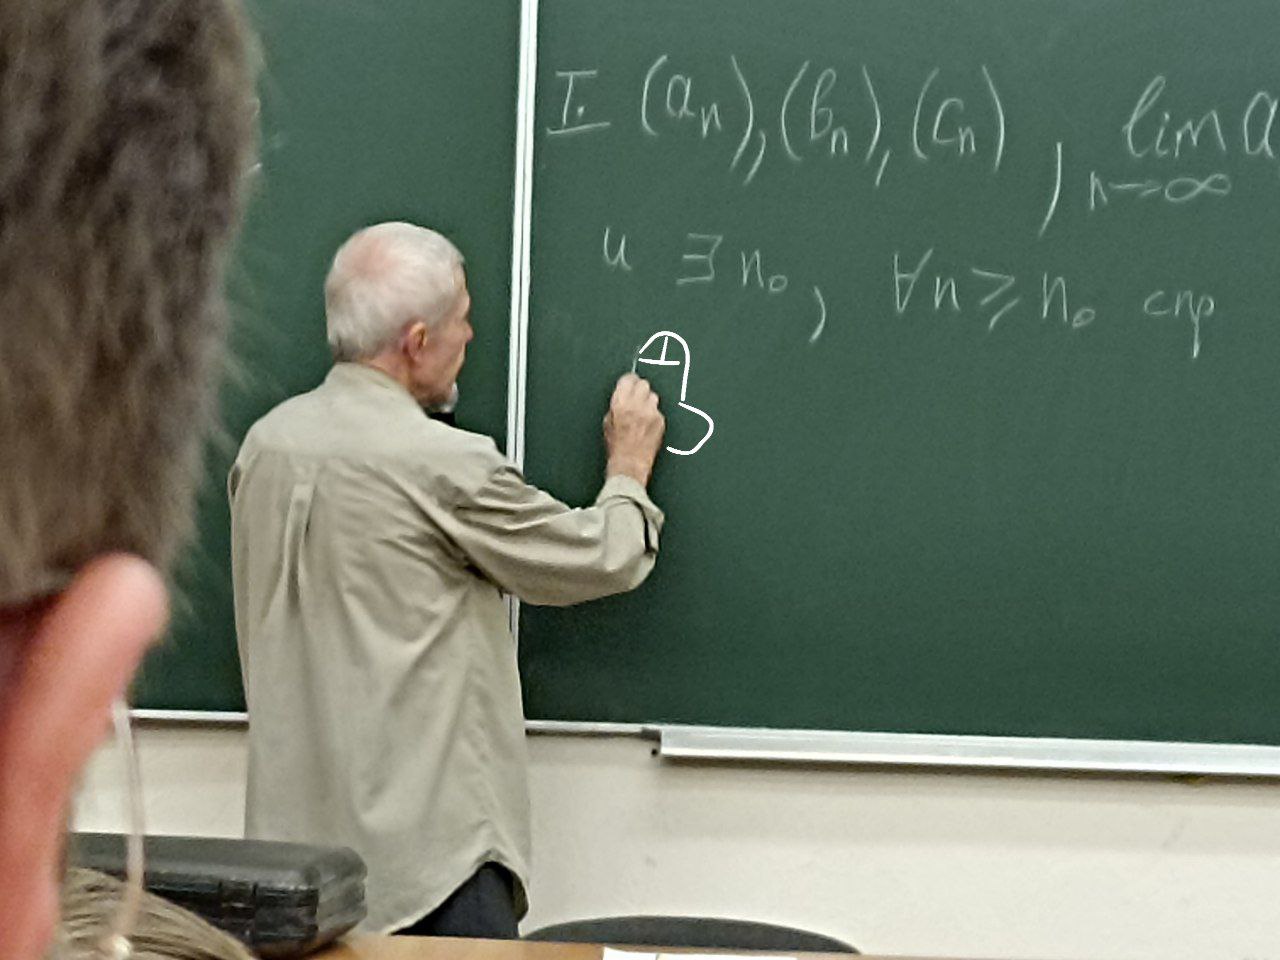 Т. (aₙ), (bₙ), (cₙ), lim a
n→∞
и ∃ n₀, ∀n ⩾ n₀ спр